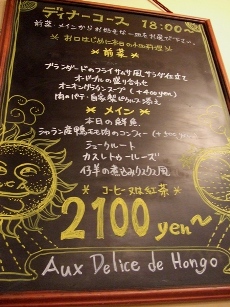 ディナーコース 18:00〜
前菜、メインからお好きな一皿をお選び下さい。
お口はじめに本日の小皿料理
※ 前菜 ※
ブランダードのフライ サラダ仕立て
オードブルの盛り合わせ
オニオングラタンスープ (+400yen)
肉のパテ・自家製ピクルス添え
※ メイン ※
本日の鮮魚
シャラン産鴨モモ肉のコンフィー
シュークルート
カスレトゥールーズ
仔羊の煮込みクスクス風
※ コーヒー又は紅茶 ※
2100 yen〜
Aux Delice de Hongo